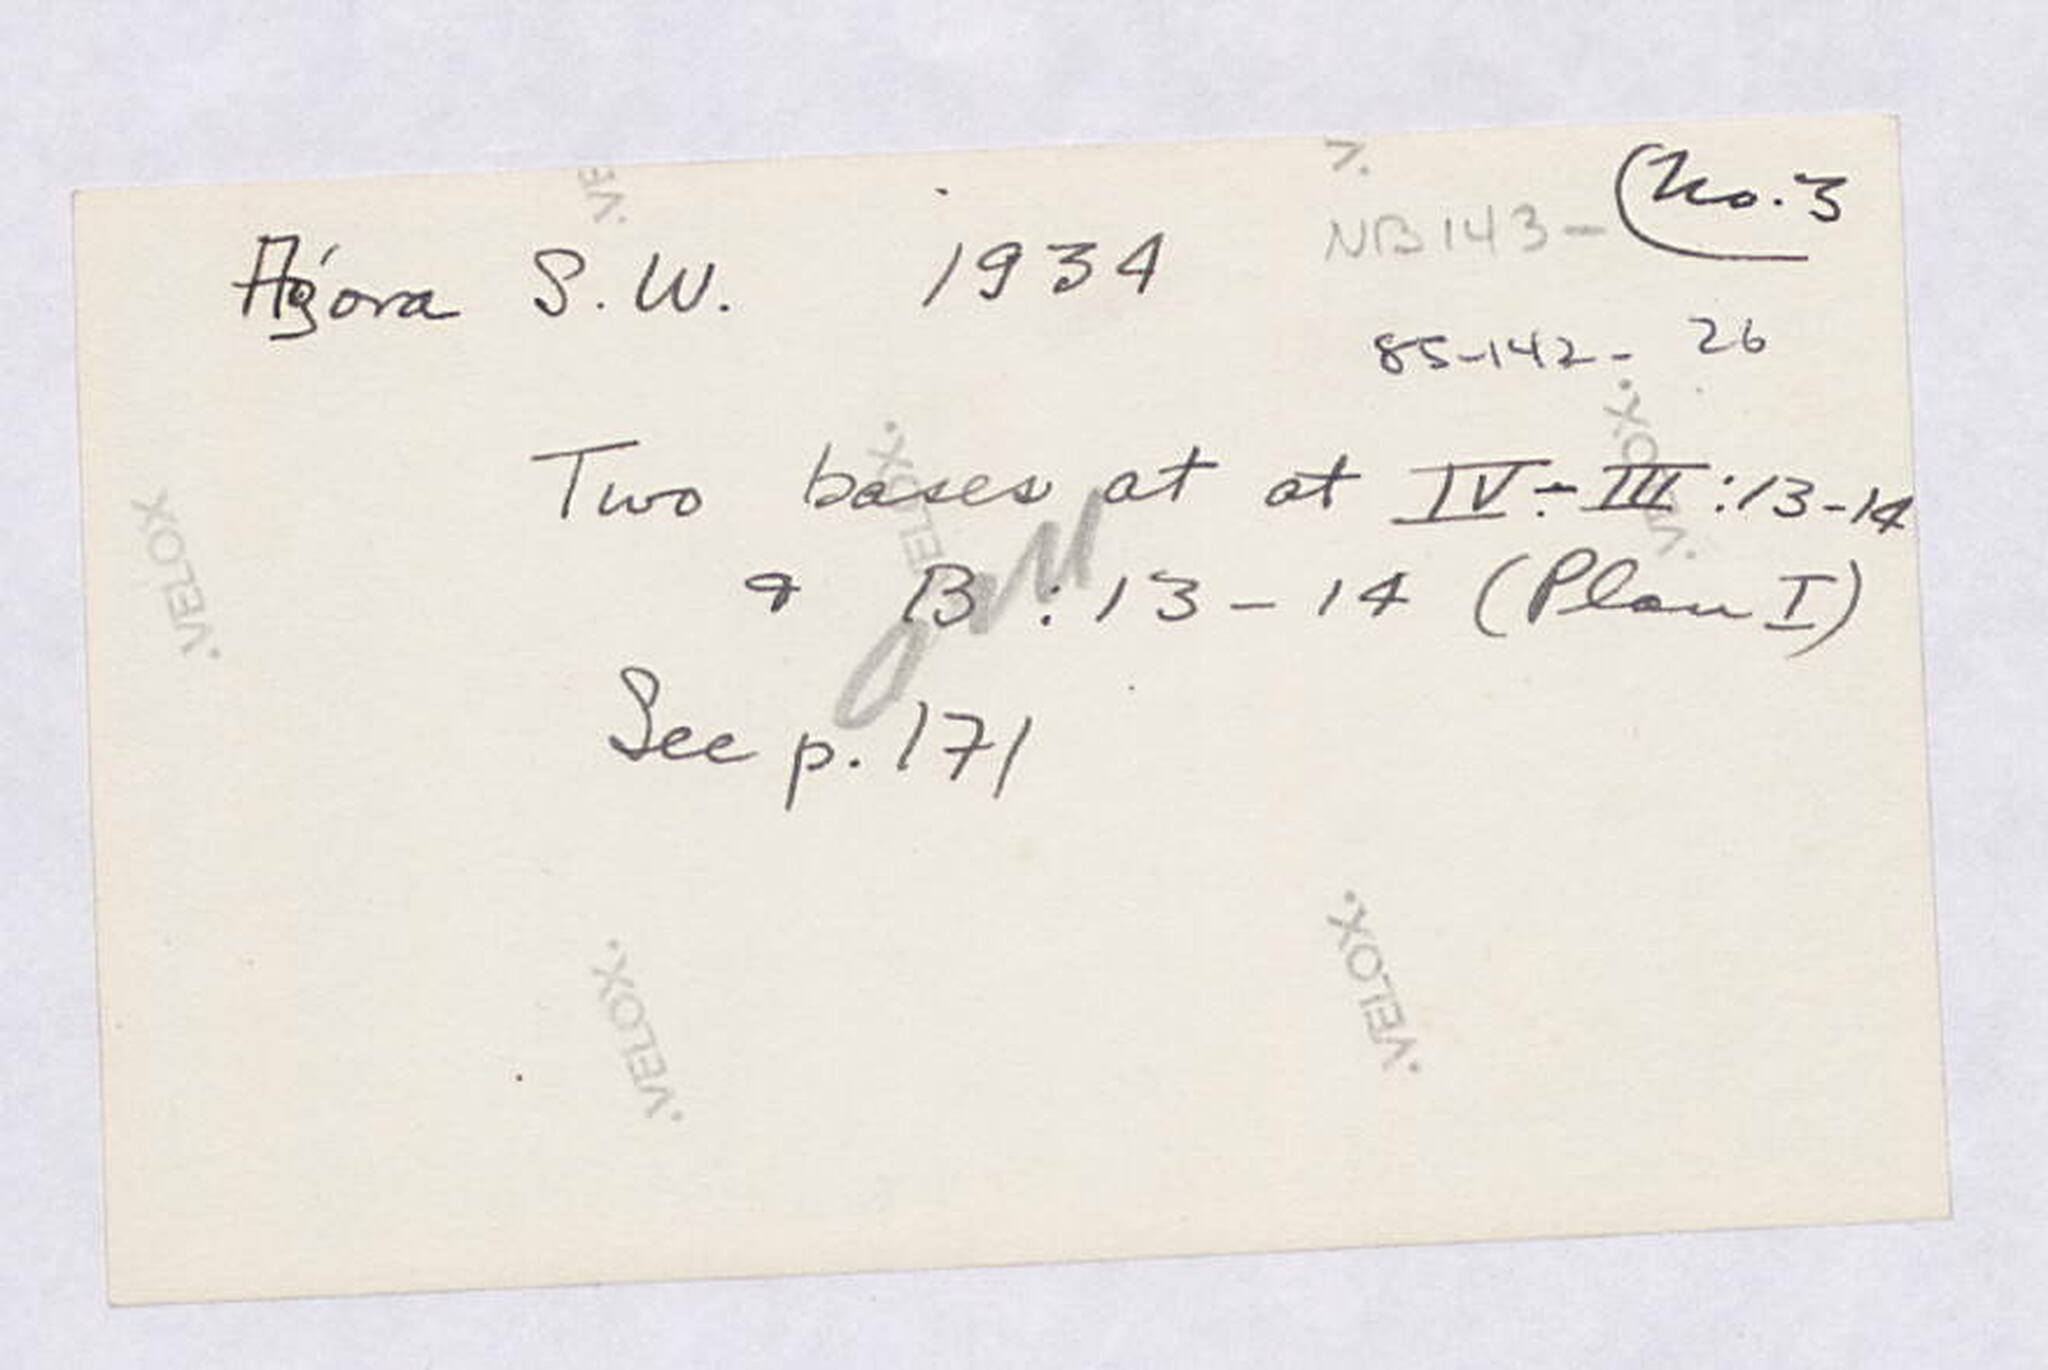 No. 3
NB 143 -
Agora S.W. 1934
85-142- 26
Two bases at at IV-III:13-14
& B:13-14 (Plan I)
See p. 171
VELOX
VELOX
VELOX
VELOX
VELOX
VE
V